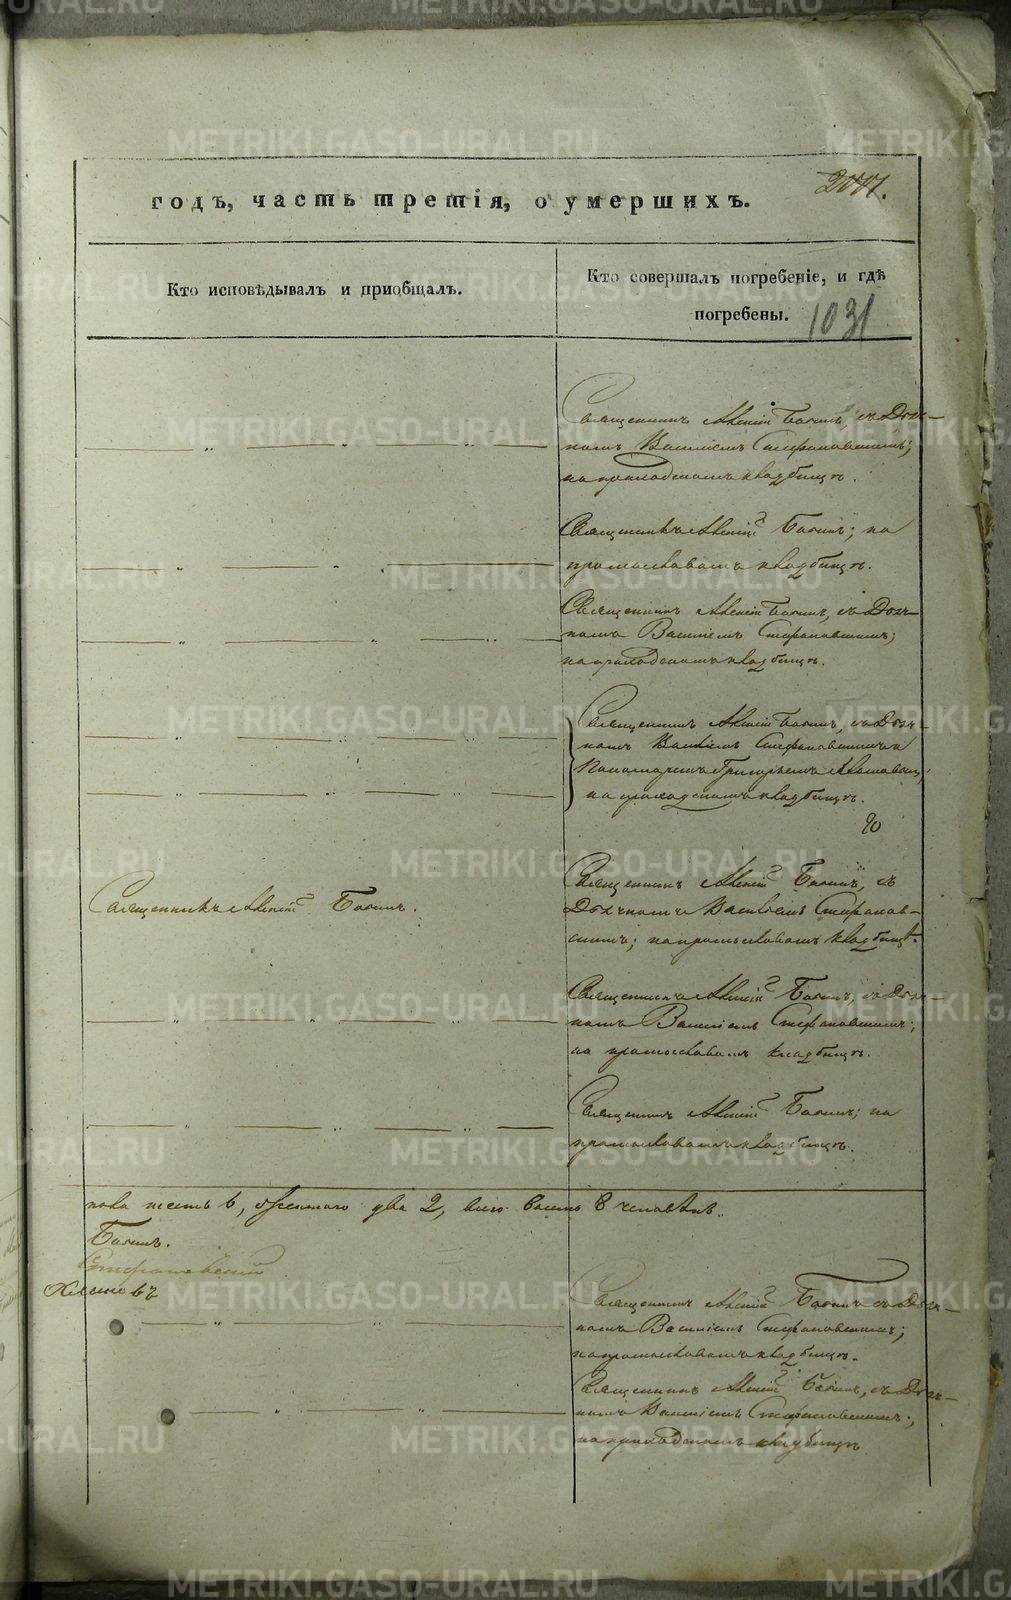 годъ, часть третія, о умершихъ.
1031
Кто исповѣдывалъ и пріобщалъ.
Кто совершалъ погребеніе, и гдѣ
погребены.
Священникъ Алексій Бабинъ, съ Дьяч-
комъ Василіемъ Стефановскимъ;
на приходскомъ кладбищѣ.
Священникъ Алексій Бабинъ; на
кладбищѣ.
Священникъ Алексій Бабинъ, съ Дьяч-
комъ Василіемъ Стефановскимъ;
на приходскомъ кладбищѣ.
Священникъ Алексій Бабинъ, съ Дьяч-
комъ Василіемъ Стефановскимъ и
Пономаремъ Григорьемъ
на приходскомъ кладбищѣ.
Священникъ Алексій Бабинъ.
Священникъ Алексій Бабинъ, съ
Дьячкомъ Василіемъ Стефанов-
скимъ; на кладбищѣ.
Священникъ Алексій Бабинъ, съ Дьяч-
комъ Василіемъ Стефановскимъ;
на кладбищѣ.
Священникъ Алексій Бабинъ; на
кладбищѣ.
пола шесть 6, женскаго два 2, всего восемь 8 человѣкъ.
Бабинъ.
Стефановскій
Священникъ Алексій Бабинъ съ Дьяч-
комъ Василіемъ Стефановскимъ;
на кладбищѣ.
Священникъ Алексій Бабинъ, съ Дьяч-
комъ Василіемъ Стефановскимъ;
на приходскомъ кладбищѣ
METRIKI.GASO-URAL.RU